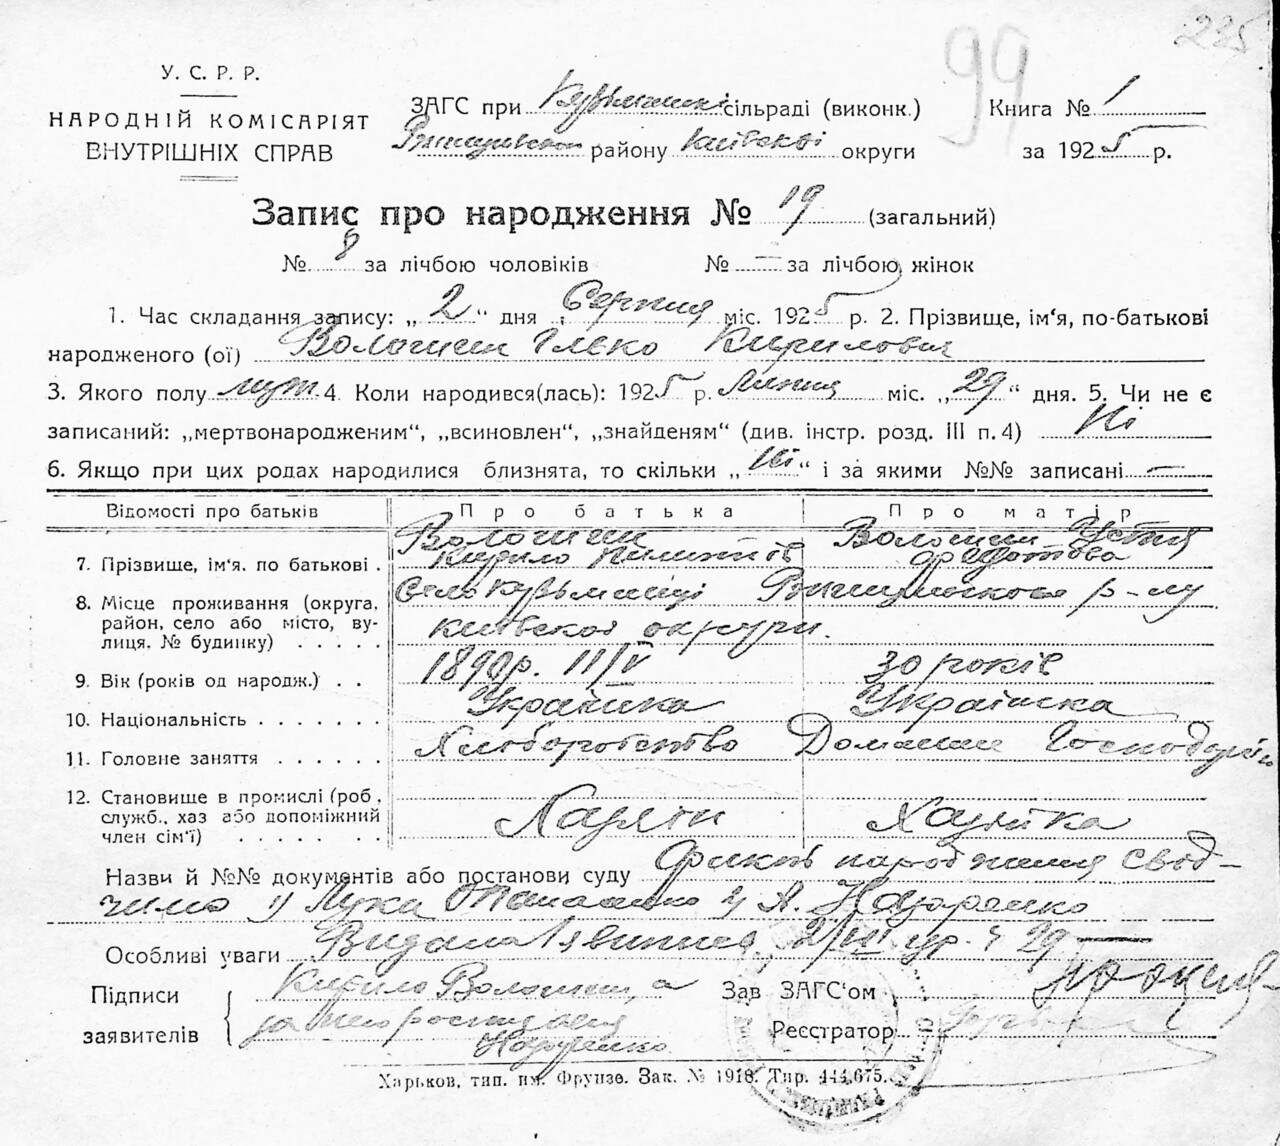 99
225
У. С. Р. Р.
НАРОДНІЙ КОМІСАРІЯТ
ВНУТРІШНІХ СПРАВ
ЗАГС при сільраді (виконк.)
району Київскої округи
Книга № 1
за 1925 р.
Запис про народження № 19 (загальний)
№ 8 за лічбою чоловіків № — за лічбою жінок
1. Час складання запису: „ 2 “ дня „ Серпня міс. 1925 р. 2. Прізвище, ім‘я, по-батькові
народженого (ої) Волошин Ілько Кирилович
3. Якого полу муж. 4. Коли народився(лась): 1925 р. Липня міс. „ 29 “ дня. 5. Чи не є
записаний: „мертвонародженим“, „всиновлен“, „знайденям“ (див. інстр. розд. III п. 4) Ні
6. Якщо при цих родах народилися близнята, то скільки „ Ні “ і за якими №№ записані —
Відомості про батьків Про батька Про матір
7. Прізвище, ім‘я. по батькові . Волошин Кирило Волошин Устя Федотова
8. Місце проживання (округа, район, село або місто, вулиця, № будинку) . . . . . Село р-ну
Київскої округи.
9. Вік (років од народж.) . . 1890 р. 11/V 30 років
10. Національність . . . . . . . Українка Українка
11. Головне заняття . . . . . . Хліборобство Домашнє
12. Становище в промислі (роб., служб., хаз або допоміжний член сім‘ї) . . . . . . . Хазяїн Хазяїка
Назви й №№ документів або постанови суду Факт народження свід-
чимо 1) Лука 2) А. Назаренко
Особливі уваги Видана
Підписи
заявителів
Кирило Волошин, а
за него росписався
Назаренко
Зав ЗАГС‘ом
Реєстратор
Харьков, тип. им. Фрунзе. Зак. № 1918. Тир. 444.675.